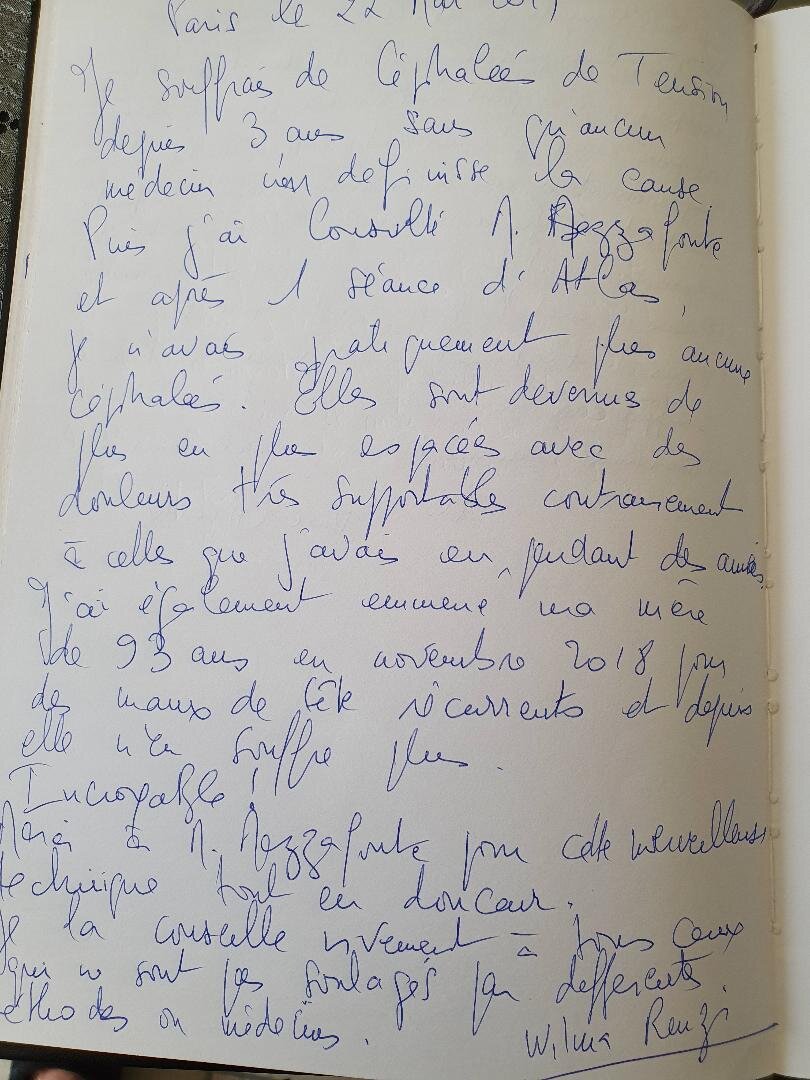 Paris le 22 Mai
Je souffrais de Céphalées de Tension
depuis 3 ans sans qu'aucun
médecin n'en définisse la cause.
Puis j'ai Consulté M. Mezzafonte
et après 1 séance d'Atlas,
je n'avais pratiquement plus aucune
céphalées. Elles sont devenus de
plus en plus espacées avec des
douleurs très supportables contrairement
à celles que j'avais eu, pendant des années.
J'ai également emmené ma mère
de 93 ans en novembre 2018 pour
des maux de tête récurrents et depuis
elle n'en souffre plus.
Incroyable !
Merci à M. Mezzafonte pour cette merveilleuse
technique tout en douceur.
Je la conseille vivement à tous ceux
qui ne sont pas soulagés par differents
éthodes ou médecins.
Wilma Renzi